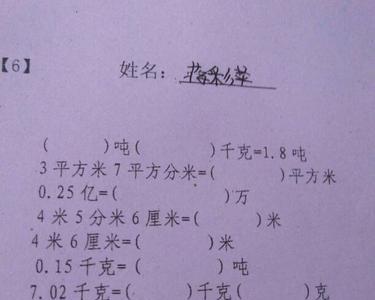 【6】
姓名：
(　　)吨(　　)千克=1.8吨
3平方米7平方分米=(　　)平方米
0.25亿=(　　)万
4米5分米6厘米=(　　)米
4米6厘米=(　　)米
0.15千克=(　　)吨
7.02千克=(　　)千克(　　)克